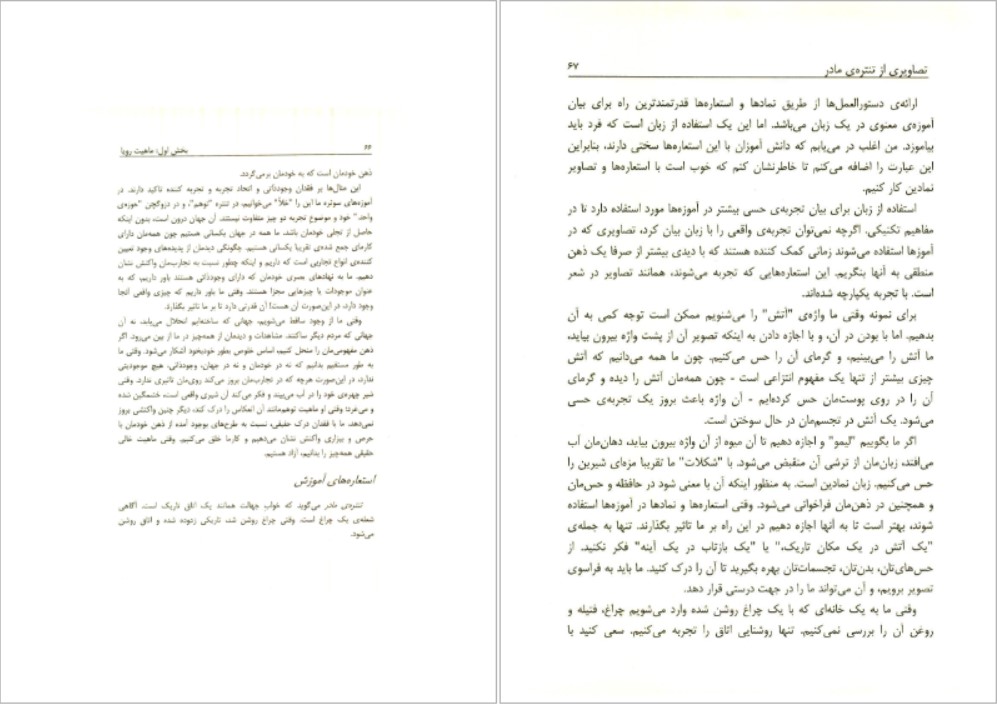 ۶۶ بخش اول: ماهیت رویا
ذهن خودمان است که به خودمان برمی‌گردد.
این مثال‌ها بر فقدان وجودذاتی و اتحاد تجربه و تجربه کننده تاکید دارند. در
آموزه‌های سوتره ما این را "خلأ" می‌خوانیم، در تنتره "توهم"، و در دزوگچن "حوزه‌ی
واحد." خود و موضوع تجربه دو چیز متفاوت نیستند. آن جهان درون است، بدون اینکه
حاصل از تجلی خودمان باشد. ما همه در جهان یکسانی هستیم چون همه‌مان دارای
کارمای جمع شده‌ی تقریبا یکسانی هستیم. چگونگی دیدمان از پدیده‌های وجود تعیین
کننده‌ی انواع تجاربی است که داریم و اینکه چطور نسبت به تجارب‌مان واکنش نشان
دهیم. ما به نهادهای بصری خودمان که دارای وجودذاتی هستند باور داریم، که به
عنوان موجودات یا چیزهایی مجزا هستند. وقتی ما باور داریم که چیزی واقعی آنجا
وجود دارد، در این‌صورت آن هست! آن قدرتی دارد تا بر ما تاثیر بگذارد.
وقتی ما از وجود ساقط می‌شویم، جهانی که ساخته‌ایم انحلال می‌یابد، نه آن
جهانی که مردم دیگر ساکنند. مشاهدات و دیدمان از همه‌چیز در ما از بین می‌رود. اگر
ذهن مفهومی‌مان را منحل کنیم، اساس خلوص بطور خودبخود آشکار می‌شود. وقتی ما
به طور مستقیم بدانیم که نه در خودمان و نه در جهان، وجودذاتی، هیچ موجودیتی
ندارد، در این‌صورت هرچه که در تجارب‌مان بروز می‌کند روی‌مان تاثیری ندارد. وقتی
شیر چهره‌ی خود را در آب می‌بیند و فکر می‌کند آن شیری واقعی است، خشمگین شده
و می‌غرد؛ وقتی او ماهیت توهم‌مانند آن انعکاس را درک کند، دیگر چنین واکنشی بروز
نمی‌دهد. ما با فقدان درک حقیقی، نسبت به طرح‌های بوجود آمده از ذهن خودمان با
حرص و بیزاری واکنش نشان می‌دهیم و کارما خلق می‌کنیم. وقتی ماهیت خالی
حقیقی همه‌چیز را بدانیم، آزاد هستیم.
استعاره‌های آموزش
تنتره‌ی مادر می‌گوید که خواب جهالت همانند یک اتاق تاریک است. آگاهی
شعله‌ی یک چراغ است. وقتی چراغ روشن شد، تاریکی زدوده شده و اتاق روشن
می‌شود.
تصاویری از تنتره‌ی مادر ۶۷
ارائه‌ی دستورالعمل‌ها از طریق نمادها و استعاره‌ها قدرتمندترین راه برای بیان
آموزه‌ی معنوی در یک زبان می‌باشد. اما این یک استفاده از زبان است که فرد باید
بیاموزد. من اغلب در می‌یابم که دانش آموزان با این استعاره‌ها سختی دارند، بنابراین
این عبارت را اضافه می‌کنم تا خاطرنشان کنم که خوب است با استعاره‌ها و تصاویر
نمادین کار کنیم.
استفاده از زبان برای بیان تجربه‌ی حسی بیشتر در آموزه‌ها مورد استفاده دارد تا در
مفاهیم تکنیکی. اگرچه نمی‌توان تجربه‌ی واقعی را با زبان بیان کرد، تصاویری که در
آموزها استفاده می‌شوند زمانی کمک کننده هستند که با دیدی بیشتر از صرفا یک ذهن
منطقی به آنها بنگریم. این استعاره‌هایی که تجربه می‌شوند، همانند تصاویر در شعر
است. با تجربه یکپارچه شده‌اند.
برای نمونه وقتی ما واژه‌ی "آتش" را می‌شنویم ممکن است توجه کمی به آن
بدهیم. اما با بودن در آن، و با اجازه دادن به اینکه تصویر آن از پشت واژه بیرون بیاید،
ما آتش را می‌بینیم، و گرمای آن را حس می‌کنیم. چون ما همه می‌دانیم که آتش
چیزی بیشتر از تنها یک مفهوم انتزاعی است - چون همه‌مان آتش را دیده و گرمای
آن را در روی پوست‌مان حس کرده‌ایم - آن واژه باعث بروز یک تجربه‌ی حسی
می‌شود. یک آتش در تجسم‌مان در حال سوختن است.
اگر ما بگوییم "لیمو" و اجازه دهیم تا آن میوه از آن واژه بیرون بیاید، دهان‌مان آب
می‌افتد، زبان‌مان از ترشی آن منقبض می‌شود. با "شکلات" ما تقریبا مزه‌ای شیرین را
حس می‌کنیم. زبان نمادین است. به منظور اینکه آن با معنی شود در حافظه و حس‌مان
و همچنین در ذهن‌مان فراخوانی می‌شود. وقتی استعاره‌ها و نمادها در آموزه‌ها استفاده
شوند، بهتر است تا به آنها اجازه دهیم در این راه بر ما تاثیر بگذارند. تنها به جمله‌ی
"یک آتش در یک مکان تاریک،" یا "یک بازتاب در یک آینه" فکر نکنید. از
حس‌های‌تان، بدن‌تان، تجسمات‌تان بهره بگیرید تا آن را درک کنید. ما باید به فراسوی
تصویر برویم، و آن می‌تواند ما را در جهت درستی قرار دهد.
وقتی ما به یک خانه‌ای که با یک چراغ روشن شده وارد می‌شویم چراغ، فتیله و
روغن آن را بررسی نمی‌کنیم. تنها روشنایی اتاق را تجربه می‌کنیم. سعی کنید با